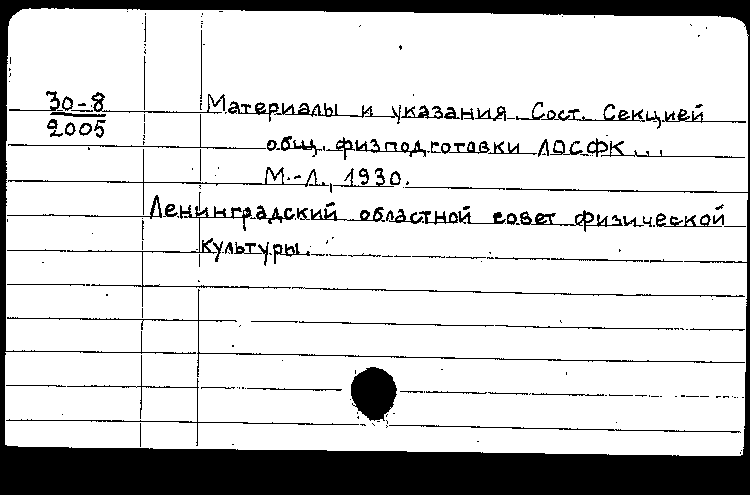 30-8
2005
Материалы и указания. Сост. Секцией
общ. физподготовки ЛОСФК...
М.-Л., 1930.
Ленинградский областной совет физической
культуры.